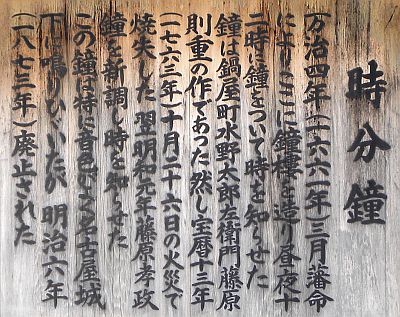 時分鐘
万治四年(一六六一年)三月藩命
によりここに鐘樓を造り昼夜十
二時に鐘をついて時を知らせた
鐘は鍋屋町水野太郎左衛門藤原
則重の作であった然し宝暦十三年
(一七六三年)十月二十六日の火災で
焼失した翌明和元年藤原孝政
鐘を新調し時を知らせた
この鐘は特に音色がよく名古屋城
下に鳴りひびいたが 明治六年
(一八七三年)廃止された